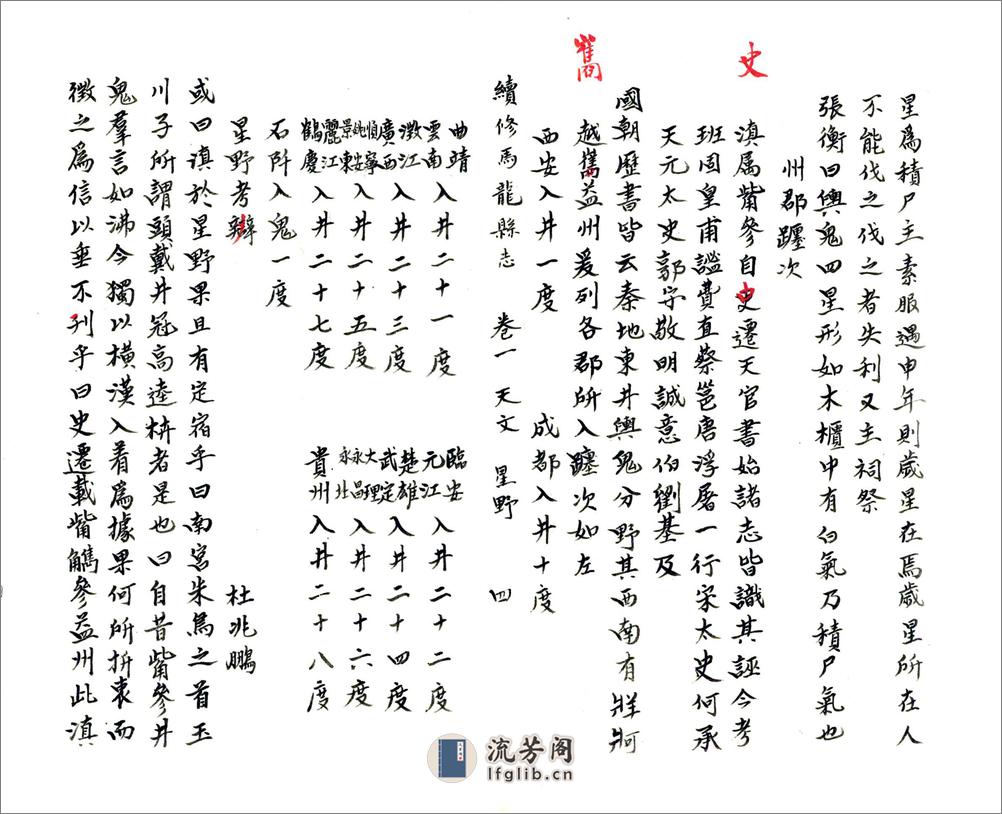 星爲積尸主素服遇申年則歲星在焉歲星所在人
不能伐之伐之者失利又主祠祭
張衡曰輿鬼四星形如木櫃中有白氣乃積尸氣也
州郡躔次
史
滇属觜參自史遷天官書始諸志皆識其誣今考
班固皇甫謐費直蔡邕唐浮屠一行宋太史何承
天元太史郭守敬明誠意伯劉基及
國朝歷書皆云秦地東井輿鬼分野其西南有牂牁
巂
越巂益州爰列各郡所入躔次如左
西安入井一度 成都入井十度
續修馬龍縣志 卷一 天文 星野 四
曲靖雲南入井二十一度 臨安元江入井二十二度
澂江廣西入井二十三度 楚雄武定入井二十四度
順寧姚安景東入井二十五度 大理永昌永北入井二十六度
麗江鶴慶入井二十七度 貴州入井二十八度
石阡入鬼一度
星野考辯 杜兆鵬
或曰滇於星野果且有定宿乎曰南宮朱鳥之首玉
川子所謂頭戴井冠高逵枿者是也曰自昔觜參井
鬼羣言如沸今獨以橫漢入着爲據果何所折衷而
徵之爲信以垂不刋乎曰史遷載觜觿參益州此滇
流芳阁
lfglib.cn